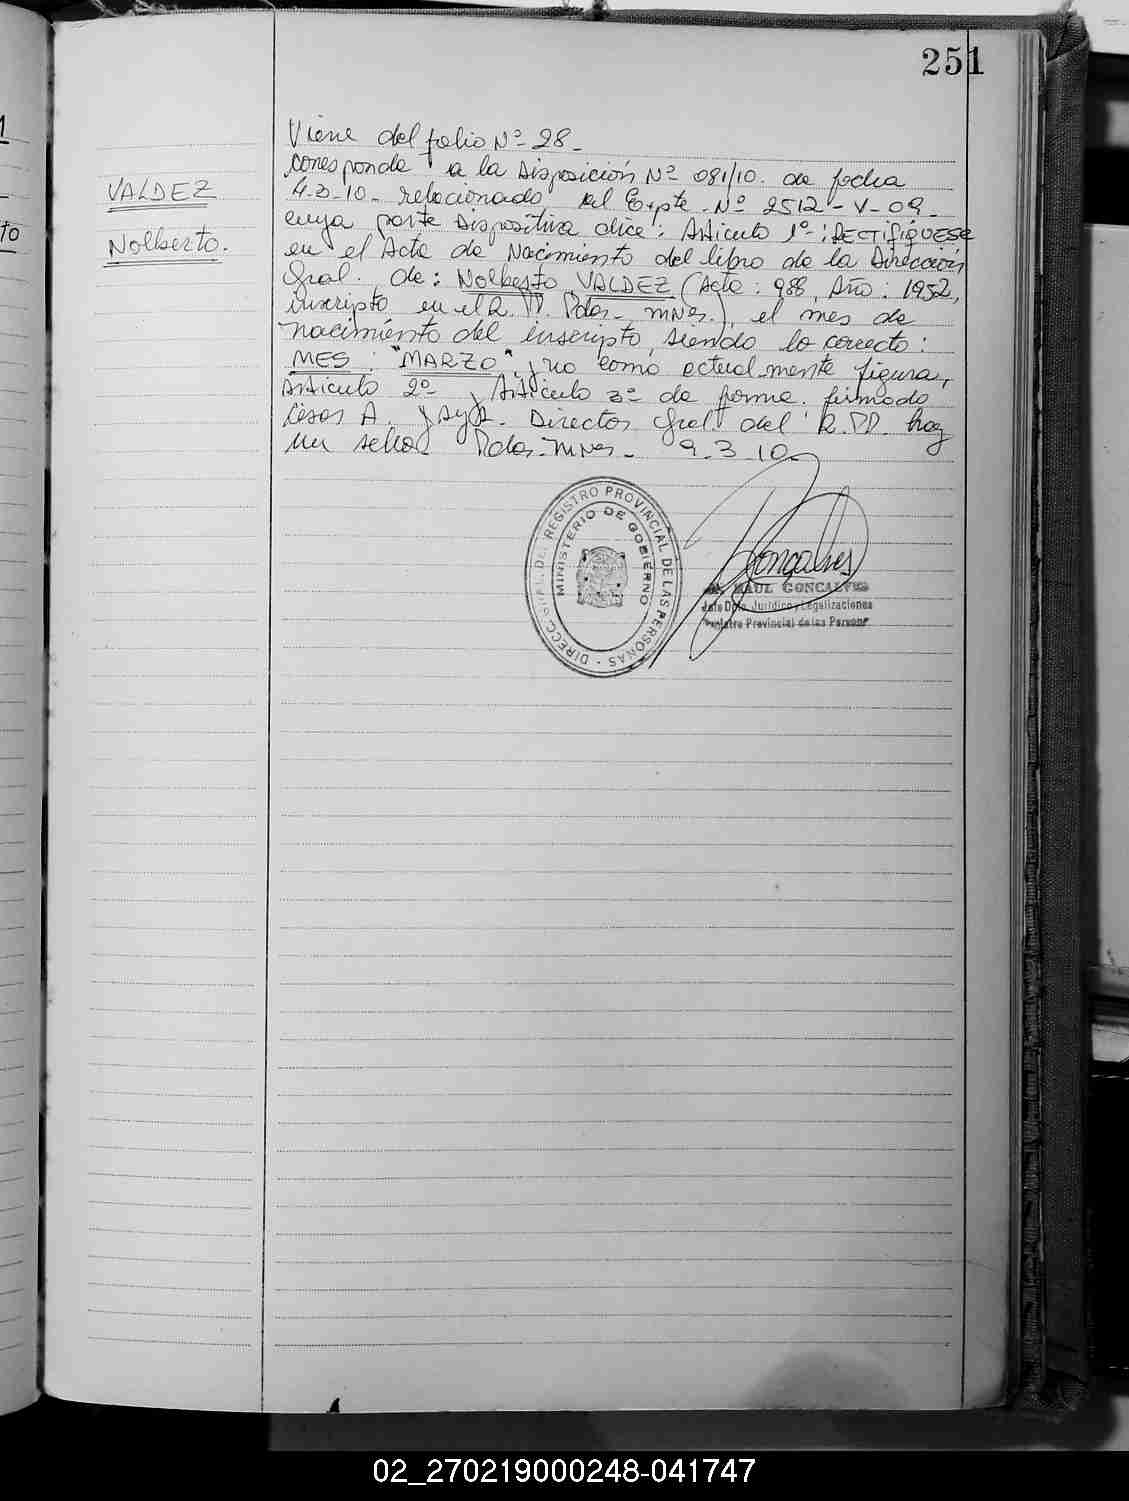 251
Viene del folio Nº 28.
VALDEZ
Nolberto.
corresponde a la Disposición Nº 081/10. de fecha
10. relacionado al Expte. Nº 2512-V-09.
cuya parte Dispositiva dice: Artículo 1º: RECTIFIQUESE
en el Acta de Nacimiento del libro de la Dirección
Gral. de: Norberto VALDEZ (Acta: 988, Año: 1952,
inscripto en el R.PP. Pdas. Mnes.), el mes de
nacimiento del inscripto, siendo lo correcto:
MES: "MARZO", y no como actual-mente figura,
Artículo 2º y Artículo 3º de forma. firmado
César A. Director Gral del R.PP. hay
un sello Pdas-Mnes- 9-3-10-
DIRECC. GRAL. DEL REGISTRO PROVINCIAL DE LAS PERSONAS
MINISTERIO DE GOBIERNO
Gonçalves
RAUL GONCALVES
Jefe Dpto. Jurídico y Legalizaciones
Registro Provincial de las Personas
to
02_270219000248-041747